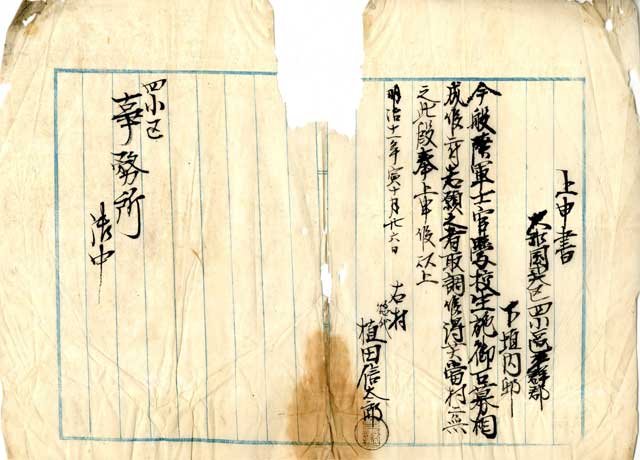 上申書
大和国 大区四小区平群郡
下垣内邨
今般陸軍士官學校生徒御召募相
成候ニ付志願之者取調候得共當村無
之此段奉上申候以上
明治十一年寅十月廿六日
右村
惣代
植田信太郎
四小区
事務所
御中